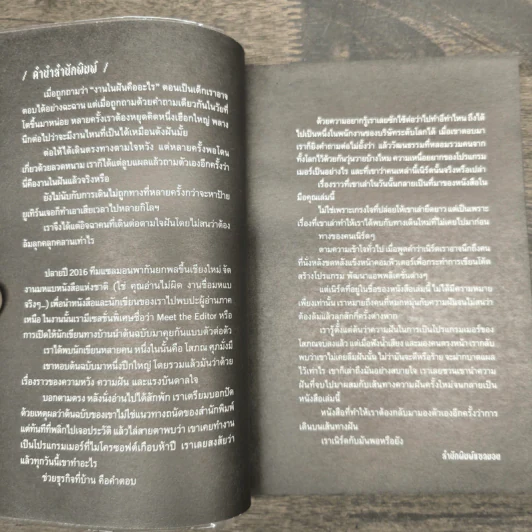 / คำนำสำนักพิมพ์ /
เมื่อถูกถามว่า “งานในฝันคืออะไร” ตอนเป็นเด็กเราอาจ
ตอบได้อย่างฉะฉาน แต่เมื่อถูกถามด้วยคำถามเดียวกันในวันที่
โตขึ้นมาหน่อย หลายครั้งเราต้องหยุดคิดหนึ่งเฮือกใหญ่ พลาง
นึกต่อไปว่าจะมีงานไหนที่เป็นได้เหมือนดังฝันมั้ย
ต่อให้ได้เดินตรงทางตามใจหวัง แต่หลายครั้งพอโดน
เกี่ยวด้วยลวดหนาม เราก็ได้แต่ลูบแผลแล้วถามตัวเองอีกครั้งว่า
นี่คืองานในฝันแล้วจริงหรือ
ยังไม่นับกับการเดินไม่ถูกทางที่หลายครั้งกว่าจะหาป้าย
ยูเทิร์นเจอก็ทำเอาเสียเวลาไปหลายกิโลฯ
เราจึงได้แต่อิจฉาคนที่เดินต่อตามใจฝันโดยไม่สนว่าต้อง
ล้มลุกคลุกคลานเท่าไร
ปลายปี 2016 ทีมแซลมอนพากันยกพลขึ้นเชียงใหม่ จัด
งานมหแบหนังสือแห่งชาติ (ใช่ คุณอ่านไม่ผิด งานชื่อมหแบ
จริงๆ...) เพื่อนำหนังสือและนักเขียนของเราไปพบปะผู้อ่านภาค
เหนือ ในงานนั้นเรามีเซสชั่นพิเศษชื่อว่า Meet the Editor หรือ
การเปิดให้นักเขียนทางบ้านนำต้นฉบับมาคุยกันแบบตัวต่อตัว
เราได้พบนักเขียนหลายคน หนึ่งในนั้นคือ โสภณ ศุภมั่งมี
เขาหอบต้นฉบับมาหนึ่งปึกใหญ่ โดยรวมแล้วมันว่าด้วย
เรื่องราวของความหวัง ความฝัน และแรงบันดาลใจ
บอกตามตรง หลังนั่งอ่านไปได้สักพัก เราเตรียมบอกปัด
ด้วยเหตุผลว่าต้นฉบับของเขาไม่ใช่แนวทางถนัดของสำนักพิมพ์
แต่ทันทีที่พลิกไปเจอประวัติ แล้วไล่สายตาพบว่า เขาเคยทำงาน
เป็นโปรแกรมเมอร์ที่ไมโครซอฟต์เกือบห้าปี เราเลยสงสัยว่า
แล้วทุกวันนี้เขาทำอะไร
ช่วยธุรกิจที่บ้าน คือคำตอบ
ด้วยความอยากรู้เราเลยซักไซ้ต่อว่าไปทำอีท่าไหน ถึงได้
ไปเป็นหนึ่งในพนักงานของบริษัทระดับโลกได้ เมื่อเขาตอบมา
เราก็ยิงคำถามต่อไม่ยั้งว่า แล้ววัฒนธรรมที่หลอมรวมคนจาก
ทั้งโลกไว้ด้วยกันวุ่นวายบ้างไหม ความเหนื่อยยากของโปรแกรม
เมอร์เป็นอย่างไร และที่เขาว่าคนเหล่านี้เนิร์ดนั้นจริงหรือเปล่า
เรื่องราวที่เขาเล่าในวันนั้นกลายเป็นที่มาของหนังสือใน
มือคุณเล่มนี้
ไม่ใช่เพราะเกรงใจที่ปล่อยให้เขาเล่ายืดยาว แต่เป็นเพราะ
เรื่องที่เขาเล่าทำให้เราได้พบกับทางเดินใหม่ที่ไม่เคยไปมาก่อน
ทางของคนเนิร์ดๆ
ตามความเข้าใจทั่วไป เมื่อพูดคำว่าเนิร์ดเราอาจนึกถึงคน
ที่นั่งหลังขดหลังแข็งหน้าคอมพิวเตอร์เพื่อกระทำการเขียนโค้ด
สร้างโปรแกรม พัฒนาแอพพลิเคชั่นต่างๆ
แต่เนิร์ดที่อยู่ในชื่อของหนังสือเล่มนี้ ไม่ได้มีความหมาย
เพียงเท่านั้น เราหมายถึงคนที่หมกมุ่นกับความฝันจนไม่สนว่า
ต้องล้มแล้วลุกสักกี่ครั้งต่างหาก
เรารู้ตั้งแต่ต้นว่าความฝันในการเป็นโปรแกรมเมอร์ของ
โสภณจบลงแล้ว แต่เมื่อฟังน้ำเสียง และมองคนตรงหน้า เรากลับ
พบว่าเขาไม่เคยลืมฝันนั้น ไม่ว่ามันจะดีหรือร้าย จะฝากบาดแผล
ไว้เท่าไร เขาก็เล่าถึงมันอย่างสบาย เราเลยชวนเขานำความ
ฝันที่จบไปมาผสมกับเส้นทางความฝันครั้งใหม่จนกลายเป็น
หนังสือเล่มนี้
หนังสือที่ทำให้เราต้องกลับมามองตัวเองอีกครั้งว่าการ
เดินบนเส้นทางฝัน
เราเนิร์ดกับมันพอหรือยัง
สำนักพิมพ์แซลมอน